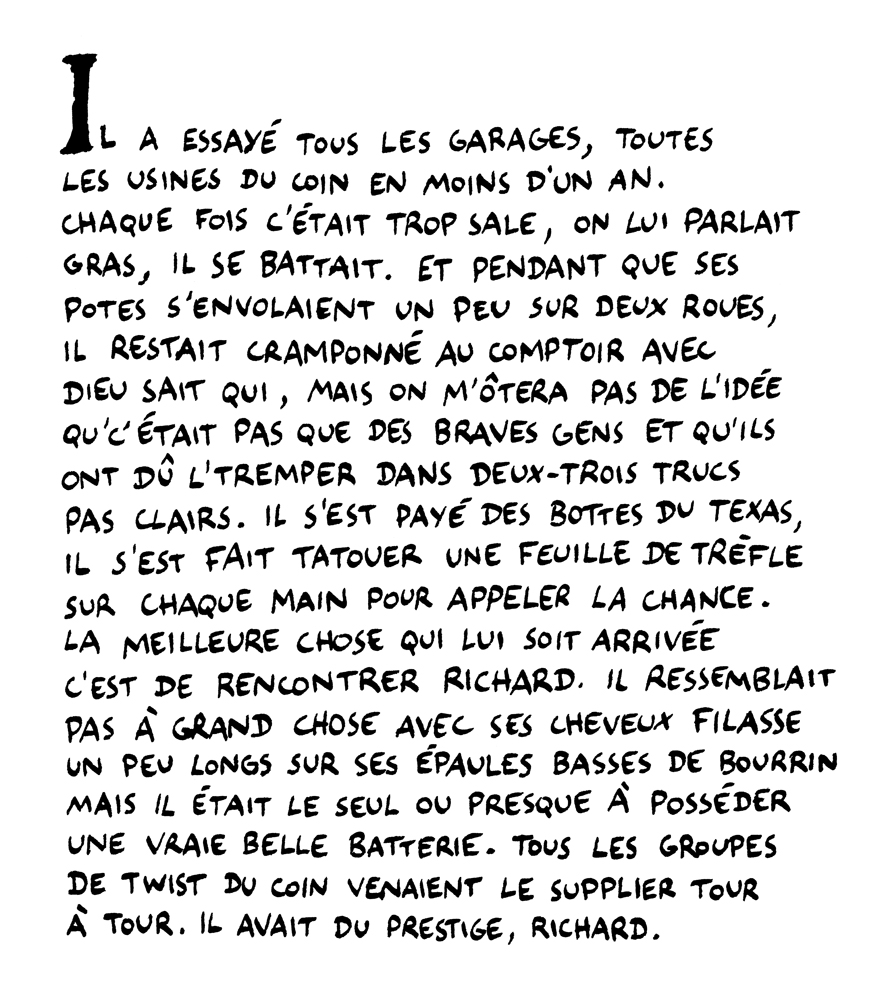 IL A ESSAYÉ TOUS LES GARAGES, TOUTES
LES USINES DU COIN EN MOINS D'UN AN.
CHAQUE FOIS C'ÉTAIT TROP SALE, ON LUI PARLAIT
GRAS, IL SE BATTAIT. ET PENDANT QUE SES
POTES S'ENVOLAIENT UN PEU SUR DEUX ROUES,
IL RESTAIT CRAMPONNÉ AU COMPTOIR AVEC
DIEU SAIT QUI, MAIS ON M'ÔTERA PAS DE L'IDÉE
QU'C'ÉTAIT PAS QUE DES BRAVES GENS ET QU'ILS
ONT DÛ L'TREMPER DANS DEUX-TROIS TRUCS
PAS CLAIRS. IL S'EST PAYÉ DES BOTTES DU TEXAS,
IL S'EST FAIT TATOUER UNE FEUILLE DE TRÈFLE
SUR CHAQUE MAIN POUR APPELER LA CHANCE.
LA MEILLEURE CHOSE QUI LUI SOIT ARRIVÉE
C'EST DE RENCONTRER RICHARD. IL RESSEMBLAIT
PAS À GRAND CHOSE AVEC SES CHEVEUX FILASSE
UN PEU LONGS SUR SES ÉPAULES BASSES DE BOURRIN
MAIS IL ÉTAIT LE SEUL OU PRESQUE À POSSÉDER
UNE VRAIE BELLE BATTERIE. TOUS LES GROUPES
DE TWIST DU COIN VENAIENT LE SUPPLIER TOUR
À TOUR. IL AVAIT DU PRESTIGE, RICHARD.